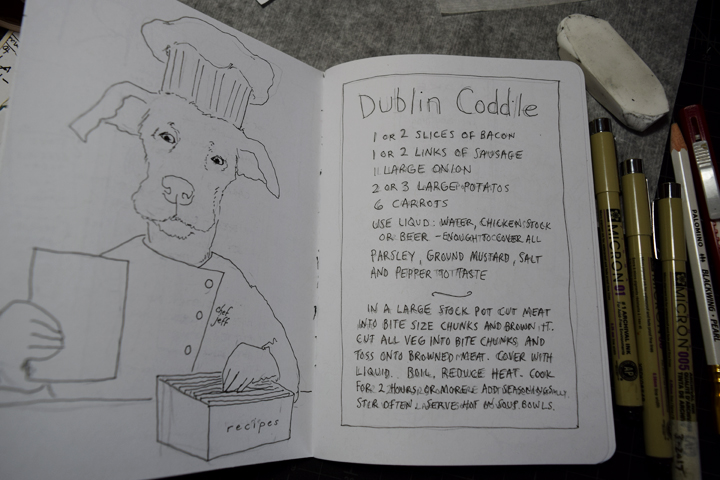 chef
Jeff
recipes
Dublin Coddle
1 OR 2 SLICES OF BACON
1 OR 2 LINKS OF SAUSAGE
1 LARGE ONION
2 OR 3 LARGE POTATOS
6 CARROTS
USE LIQUD: WATER, CHICKEN STOCK
OR BEER - ENOUGH TO COVER ALL
PARSLEY, GROUND MUSTARD, SALT
AND PEPPER TO TASTE
IN A LARGE STOCK POT CUT MEAT
INTO BITE SIZE CHUNKS AND BROWN IT.
CUT ALL VEG INTO BITE CHUNKS AND
TOSS ONTO BROWNED MEAT. COVER WITH
LIQUID. BOIL, REDUCE HEAT. COOK
FOR 2 HOURS OR MORE. ADD SEASONINGS
STIR OFTEN. SERVE HOT IN SOUP BOWLS.
MICRON 01
MICRON 005
PALOMINO
BLACKWING PEARL